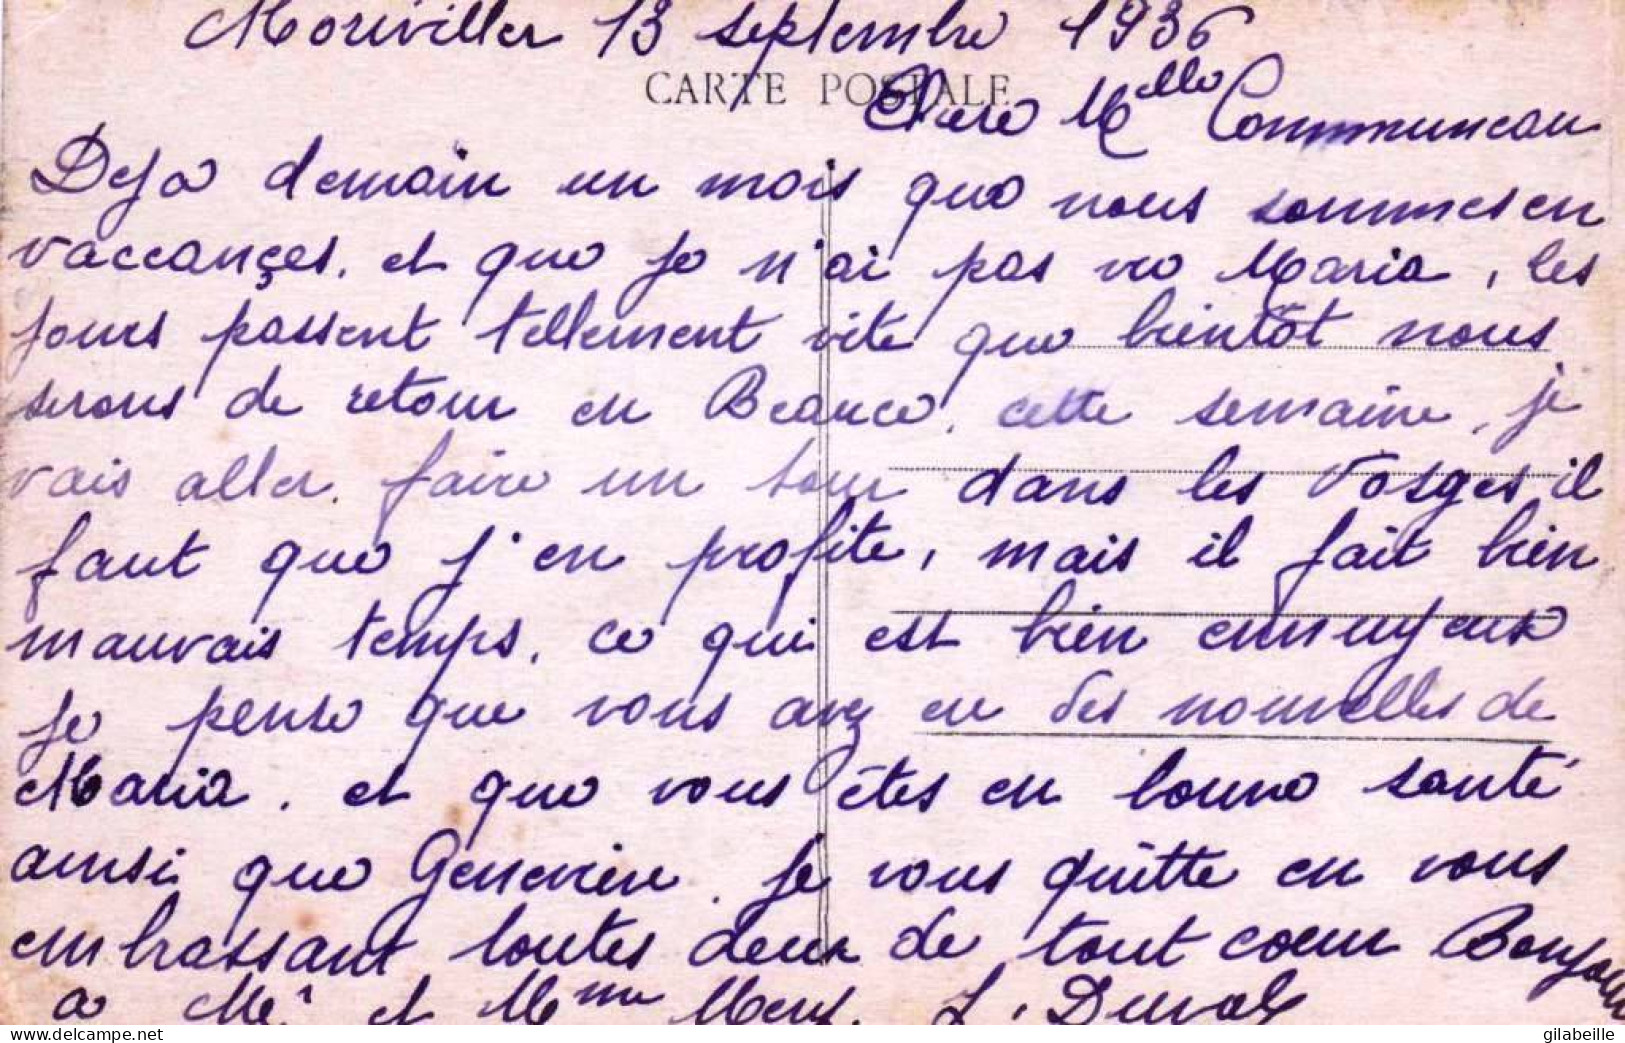 Moriviller 13 septembre 1936
CARTE POSTALE
Chere Melle Communeau
Deja demain un mois que nous sommes en
vaccançes. et que je n'ai pas vu Maria, les
jours passent tellement vite que bientôt nous
serons de retour en Beauce. cette semaine, je
vais aller. faire un tour dans les Vosges, il
faut que j'en profite, mais il fait bien
mauvais temps. ce qui est bien ennuyeux
je pense que vous avez eu des nouvelles de
Maria. et que vous êtes en bonne santé
ainsi que Genevieve. je vous quitte en vous
embrassant toutes deux de tout cœur Bonjour
a Mr et Mme L. Duval
delcampe.net
gilabeille